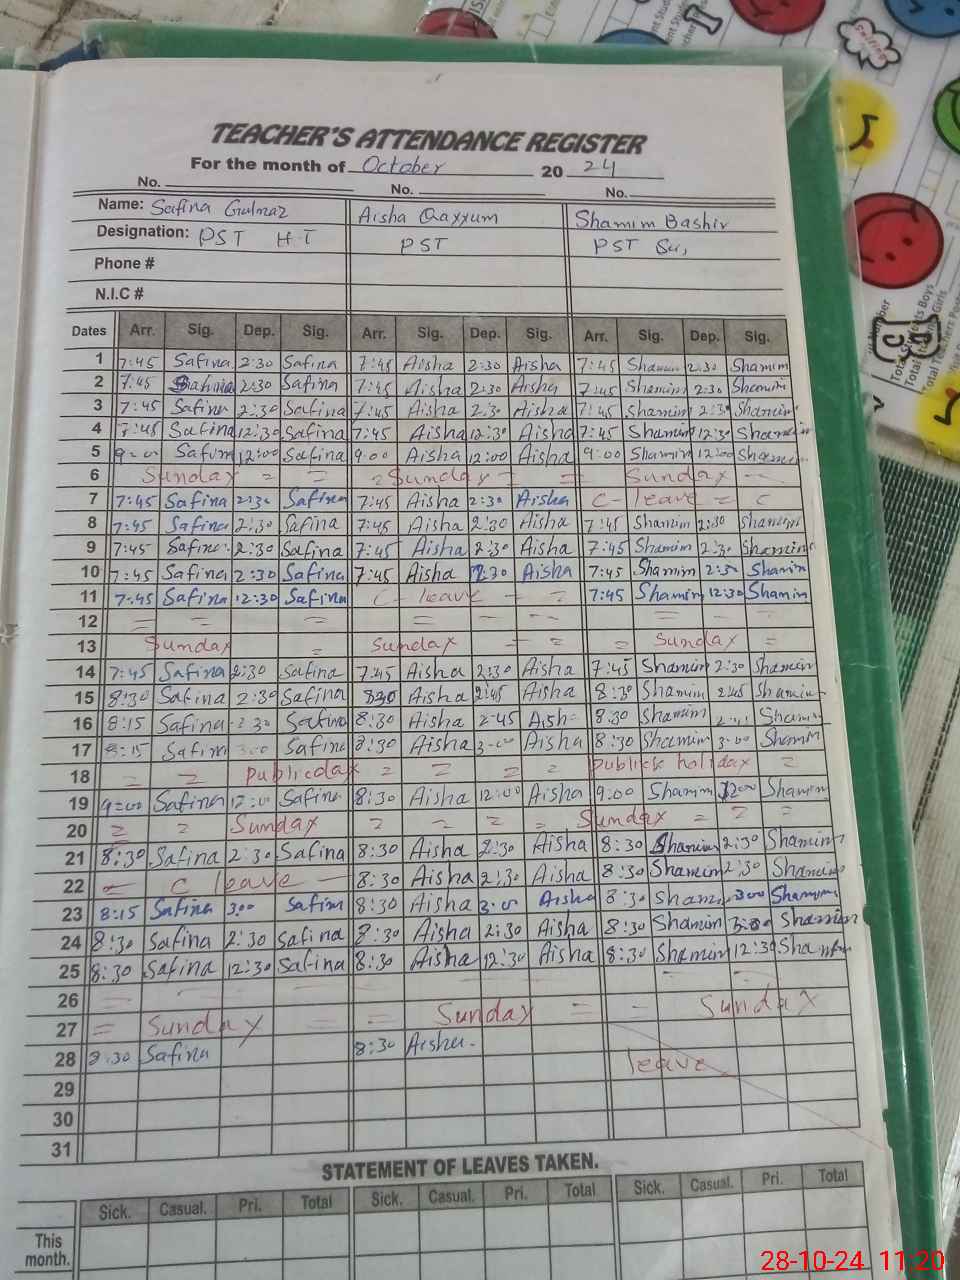 TEACHER'S ATTENDANCE REGISTER
For the month of October 20 24
No. No. No.
Name: Safina Gulnaz Aisha Qayyum Shamim Bashir
Designation: PST H.T PST PST Sr,
Phone #
N.I.C #
Dates Arr. Sig. Dep. Sig. Arr. Sig. Dep. Sig. Arr. Sig. Dep. Sig.
1 7:45 Safina 2:30 Safina 7:45 Aisha 2:30 Aisha 7:45 Shamim 2:30 Shamim
2 7:45 Safina 2:30 Safina 7:45 Aisha 2:30 Aisha 7:45 Shamim 2:30 Shamim
3 7:45 Safina 2:30 Safina 7:45 Aisha 2:30 Aisha 7:45 Shamim 2:30 Shamim
4 7:45 Safina 12:30 Safina 7:45 Aisha 12:30 Aisha 7:45 Shamim 12:30 Shamim
5 9:00 Safina 12:00 Safina 9:00 Aisha 12:00 Aisha 9:00 Shamim 12:00 Shamim
6 Sunday = = = Sunday = = Sunday -
7 7:45 Safina 2:30 Safina 7:45 Aisha 2:30 Aisha C- leave = c
8 7:45 Safina 2:30 Safina 7:45 Aisha 2:30 Aisha 7:45 Shamim 2:30 Shamim
9 7:45 Safina 2:30 Safina 7:45 Aisha 2:30 Aisha 7:45 Shamim 2:30 Shamim
10 7:45 Safina 2:30 Safina 7:45 Aisha 2:30 Aisha 7:45 Shamim 2:30 Shamim
11 7:45 Safina 12:30 Safina C- leave - = 7:45 Shamim 12:30 Shamim
12 = = = = = - - = = - -
13 Sunday = Sunday - = = Sunday =
14 7:45 Safina 2:30 Safina 7:45 Aisha 2:30 Aisha 7:45 Shamim 2:30 Shamim
15 8:30 Safina 2:30 Safina 830 Aisha 2:45 Aisha 8:30 Shamim 2:45 Shamim
16 8:15 Safina 2:30 Safina 8:30 Aisha 2-45 Aish- 8:30 Shamim Shamim
17 8:15 Safina 3:00 Safina 8:30 Aisha 3-00 Aisha 8:30 Shamim 3:00 Shamim
18 = = Publicday = = = = Publick holiday =
19 9:00 Safina 12:00 Safina 8:30 Aisha 12:00 Aisha 9:00 Shamim 1200 Shamim
20 = = Sunday = = = = Sunday = = =
21 8:30 Safina 2:30 Safina 8:30 Aisha 2:30 Aisha 8:30 Shamim 2:30 Shamim
22 - C leave - 8:30 Aisha 2:30 Aisha 8:30 Shamim 2:30 Shamim
23 8:15 Safina 3:00 Safina 8:30 Aisha 3:00 Aisha 8:30 Shamim 3:00 Shamim
24 8:30 Safina 2:30 Safina 8:30 Aisha 2:30 Aisha 8:30 Shamim Shamim
25 8:30 Safina 12:30 Safina 8:30 Aisha 12:30 Aisha 8:30 Shamim 12:30 Shamim
26
27 = Sunday = = = Sunday = = Sunday
28 8:30 Safina 8:30 Aisha. leave
29
30
31
STATEMENT OF LEAVES TAKEN.
Sick. Casual. Pri. Total Sick. Casual. Pri. Total Sick. Casual. Pri. Total
This
month.
28-10-24 11:20